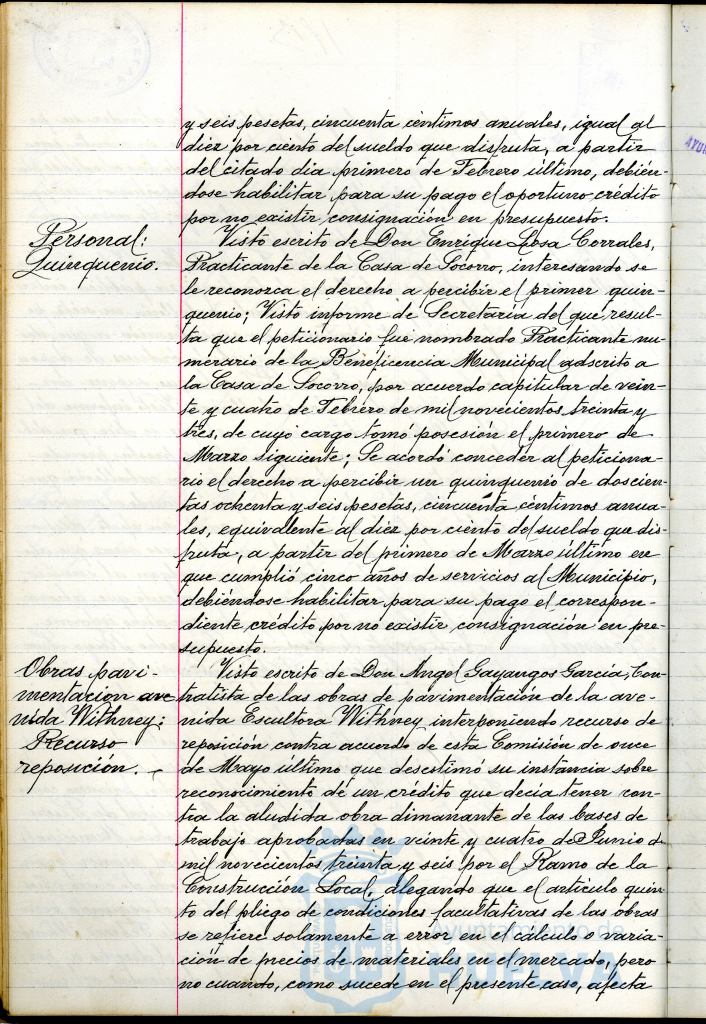 y seis pesetas, cincuenta céntimos anuales, igual al
diez por ciento del sueldo que disfruta, a partir
del citado dia primero de Febrero último, debién-
dose habilitar para su pago el oportuno crédito
por no existir consignación en presupuesto.
Personal:
Quinquenio.
Visto escrito de Don Enrique Losa Corrales,
Practicante de la Casa de Socorro, interesando se
le reconozca el derecho a percibir el primer quin-
quenio; Visto informe de Secretaria del que resul-
ta que el peticionario fue nombrado Practicante nu-
merario de la Beneficencia Municipal adscrito a
la Casa de Socorro, por acuerdo capitular de vein-
te y cuatro de Febrero de mil novecientos treinta y
tres, de cuyo cargo tomó posesión el primero de
Marzo siguiente; Se acordó conceder al peticiona-
rio el derecho a percibir un quinquenio de doscien-
tas ochenta y seis pesetas, cincuenta céntimos anua-
les, equivalente al diez por ciento del sueldo que dis-
fruta, a partir del primero de Marzo último en
que cumplió cinco años de servicios al Municipio,
debiéndose habilitar para su pago el correspon-
diente crédito por no existir consignación en pre-
supuesto.
Obras pavi-
mentacion ave
nida Withney:
Recurso
reposición.
Visto escrito de Don Angel Gayangos García, Con-
tratista de las obras de pavimentación de la ave-
nida Escultora Withney interponiendo recurso de
reposición contra acuerdo de esta Comisión de once
de Mayo último que desestimó su instancia sobre
reconocimiento de un crédito que decia tener con-
tra la aludida obra dimanante de las bases de
trabajo aprobadas en veinte y cuatro de Junio de
mil novecientos treinta y seis por el Ramo de la
Construcción Local, alegando que el artículo quin
to del pliego de condiciones facultativas de las obras
se refiere solamente a error en el cálculo o varia-
ción de precios de materiales en el mercado, pero
no cuando, como sucede en el presente caso, afecta
Ayuntamiento de
HUELVA